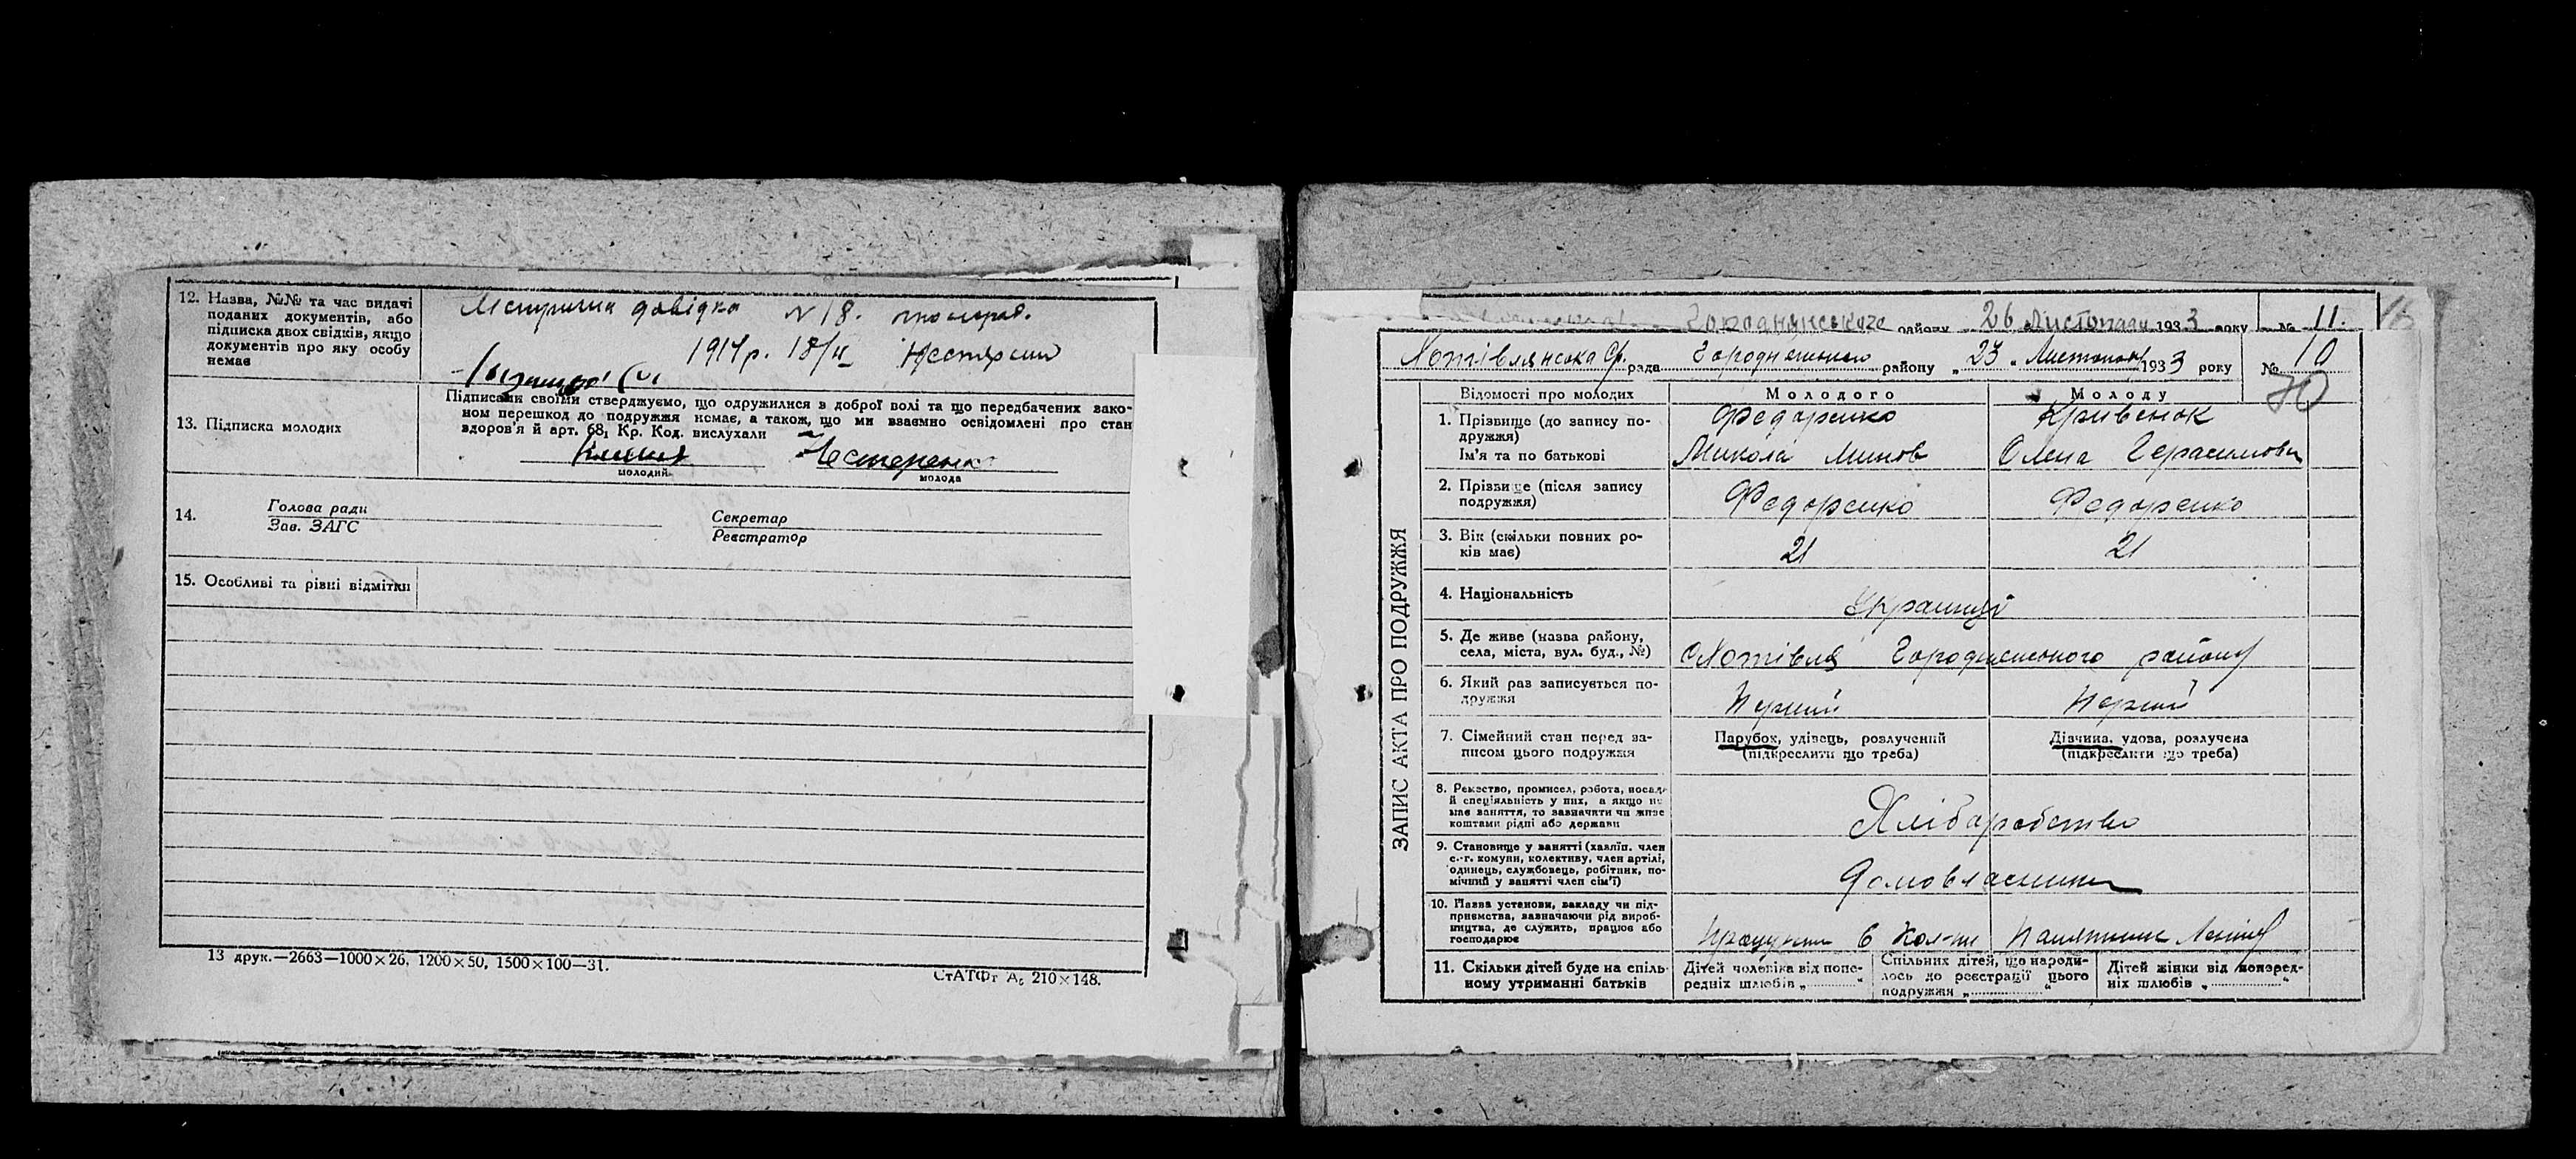 12. Назва, №№ та час видачі
поданих документів, або
підписка двох свідків, якщо
документів про яку особу
немає
довідка N 18.
1914р. 18/II
13. Підписка молодих
Підписами своїми стверджуємо, що одружилися в доброї волі та що передбачених зако-
ном перешкод до подружжя немає, а також, що ми взаємно освідомлені про стан
здоров'я й арт. 68, Кр. Код. вислухали
Нестеренко
молодий
молода
14.
Голова ради
Зав. ЗАГС
Секретар
Реєстратор
15. Особливі та різні відмітки
13 друк.—2663—1000×26, 1200×50, 1500×100—31.
СтАТФт А₆ 210×148.
Городнянського району 26 Листопада 1933 року № 11.
Хотівлянська Ср. рада Городнянського району „23 “ Листопада 1933 року № 10
70
ЗАПИС АКТА ПРО ПОДРУЖЖЯ
Відомості про молодих
Молодого
Молоду
1. Прізвище (до запису по-
дружжя)
Ім'я та по батькові
Федоренко
Микола Минов
Кривенок
Олена Герасимовн
2. Прізвище (після запису
подружжя)
Федоренко
Федоренко
3. Вік (скільки повних ро-
ків має)
21
21
4. Національність
Українці
5. Де живе (назва району,
села, міста, вул. буд., №)
с Хотівля Городнянського району
6. Який раз записується по-
дружжя
Перший
Перший
7. Сімейний стан перед за-
писом цього подружжя
Парубок, удівець, розлучений
(підкреслити що треба)
Дівчина, удова, розлучена
(підкреслити що треба)
8. Ремество, промисел, робота, посада
й спеціяльність у них, а якщо не
має заняття, то зазначити чи живе
коштами рідні або держави
Хліборобство
9. Становище у занятті (хазяїн, член
с.-г. комуни, колективу, член артілі,
одинець, службовець, робітник, по-
мічний у занятті член сім'ї)
Домовласники
10. Назва установи, закладу чи під-
приємства, зазначаючи рід вироб-
ництва, де служить, працює або
господарює
в Кол-пі Памятник Леніну
11. Скільки дітей буде на спіль-
ному утриманні батьків
Дітей чоловіка від попе-
редніх шлюбів „ “
Спільних дітей, що народи-
лось до реєстрації цього
подружжя „ “
Дітей жінки від поперед-
ніх шлюбів „ “